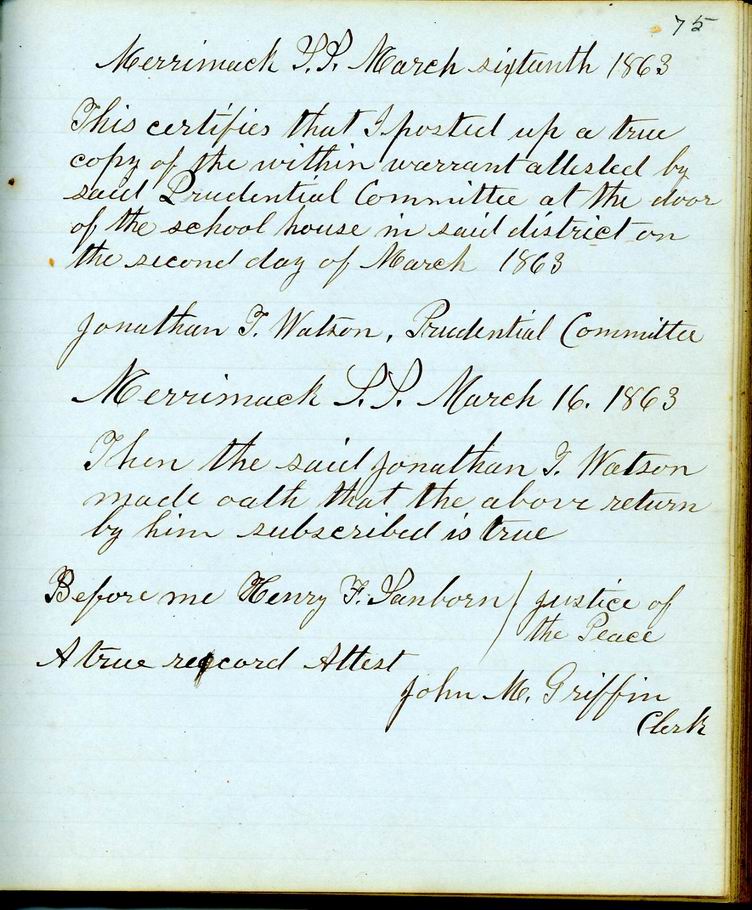 75
Merrimack S.S. March sixteenth 1863
This certifies that I posted up a true
copy of the within warrant attested by
said Prudential Committee at the door
of the school house in said district on
the second day of March 1863
Jonathan T. Watson, Prudential Committee
Merrimack S.S. March 16. 1863
Then the said Jonathan T. Watson
made oath that the above return
by him subscribed is true
Before me Henry F. Sanborn ) justice of
the Peace
A true record Attest
John M. Griffin
Clerk